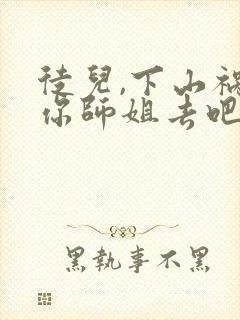 徒兒,下山禍
你師姐去吧
黑執事不黑